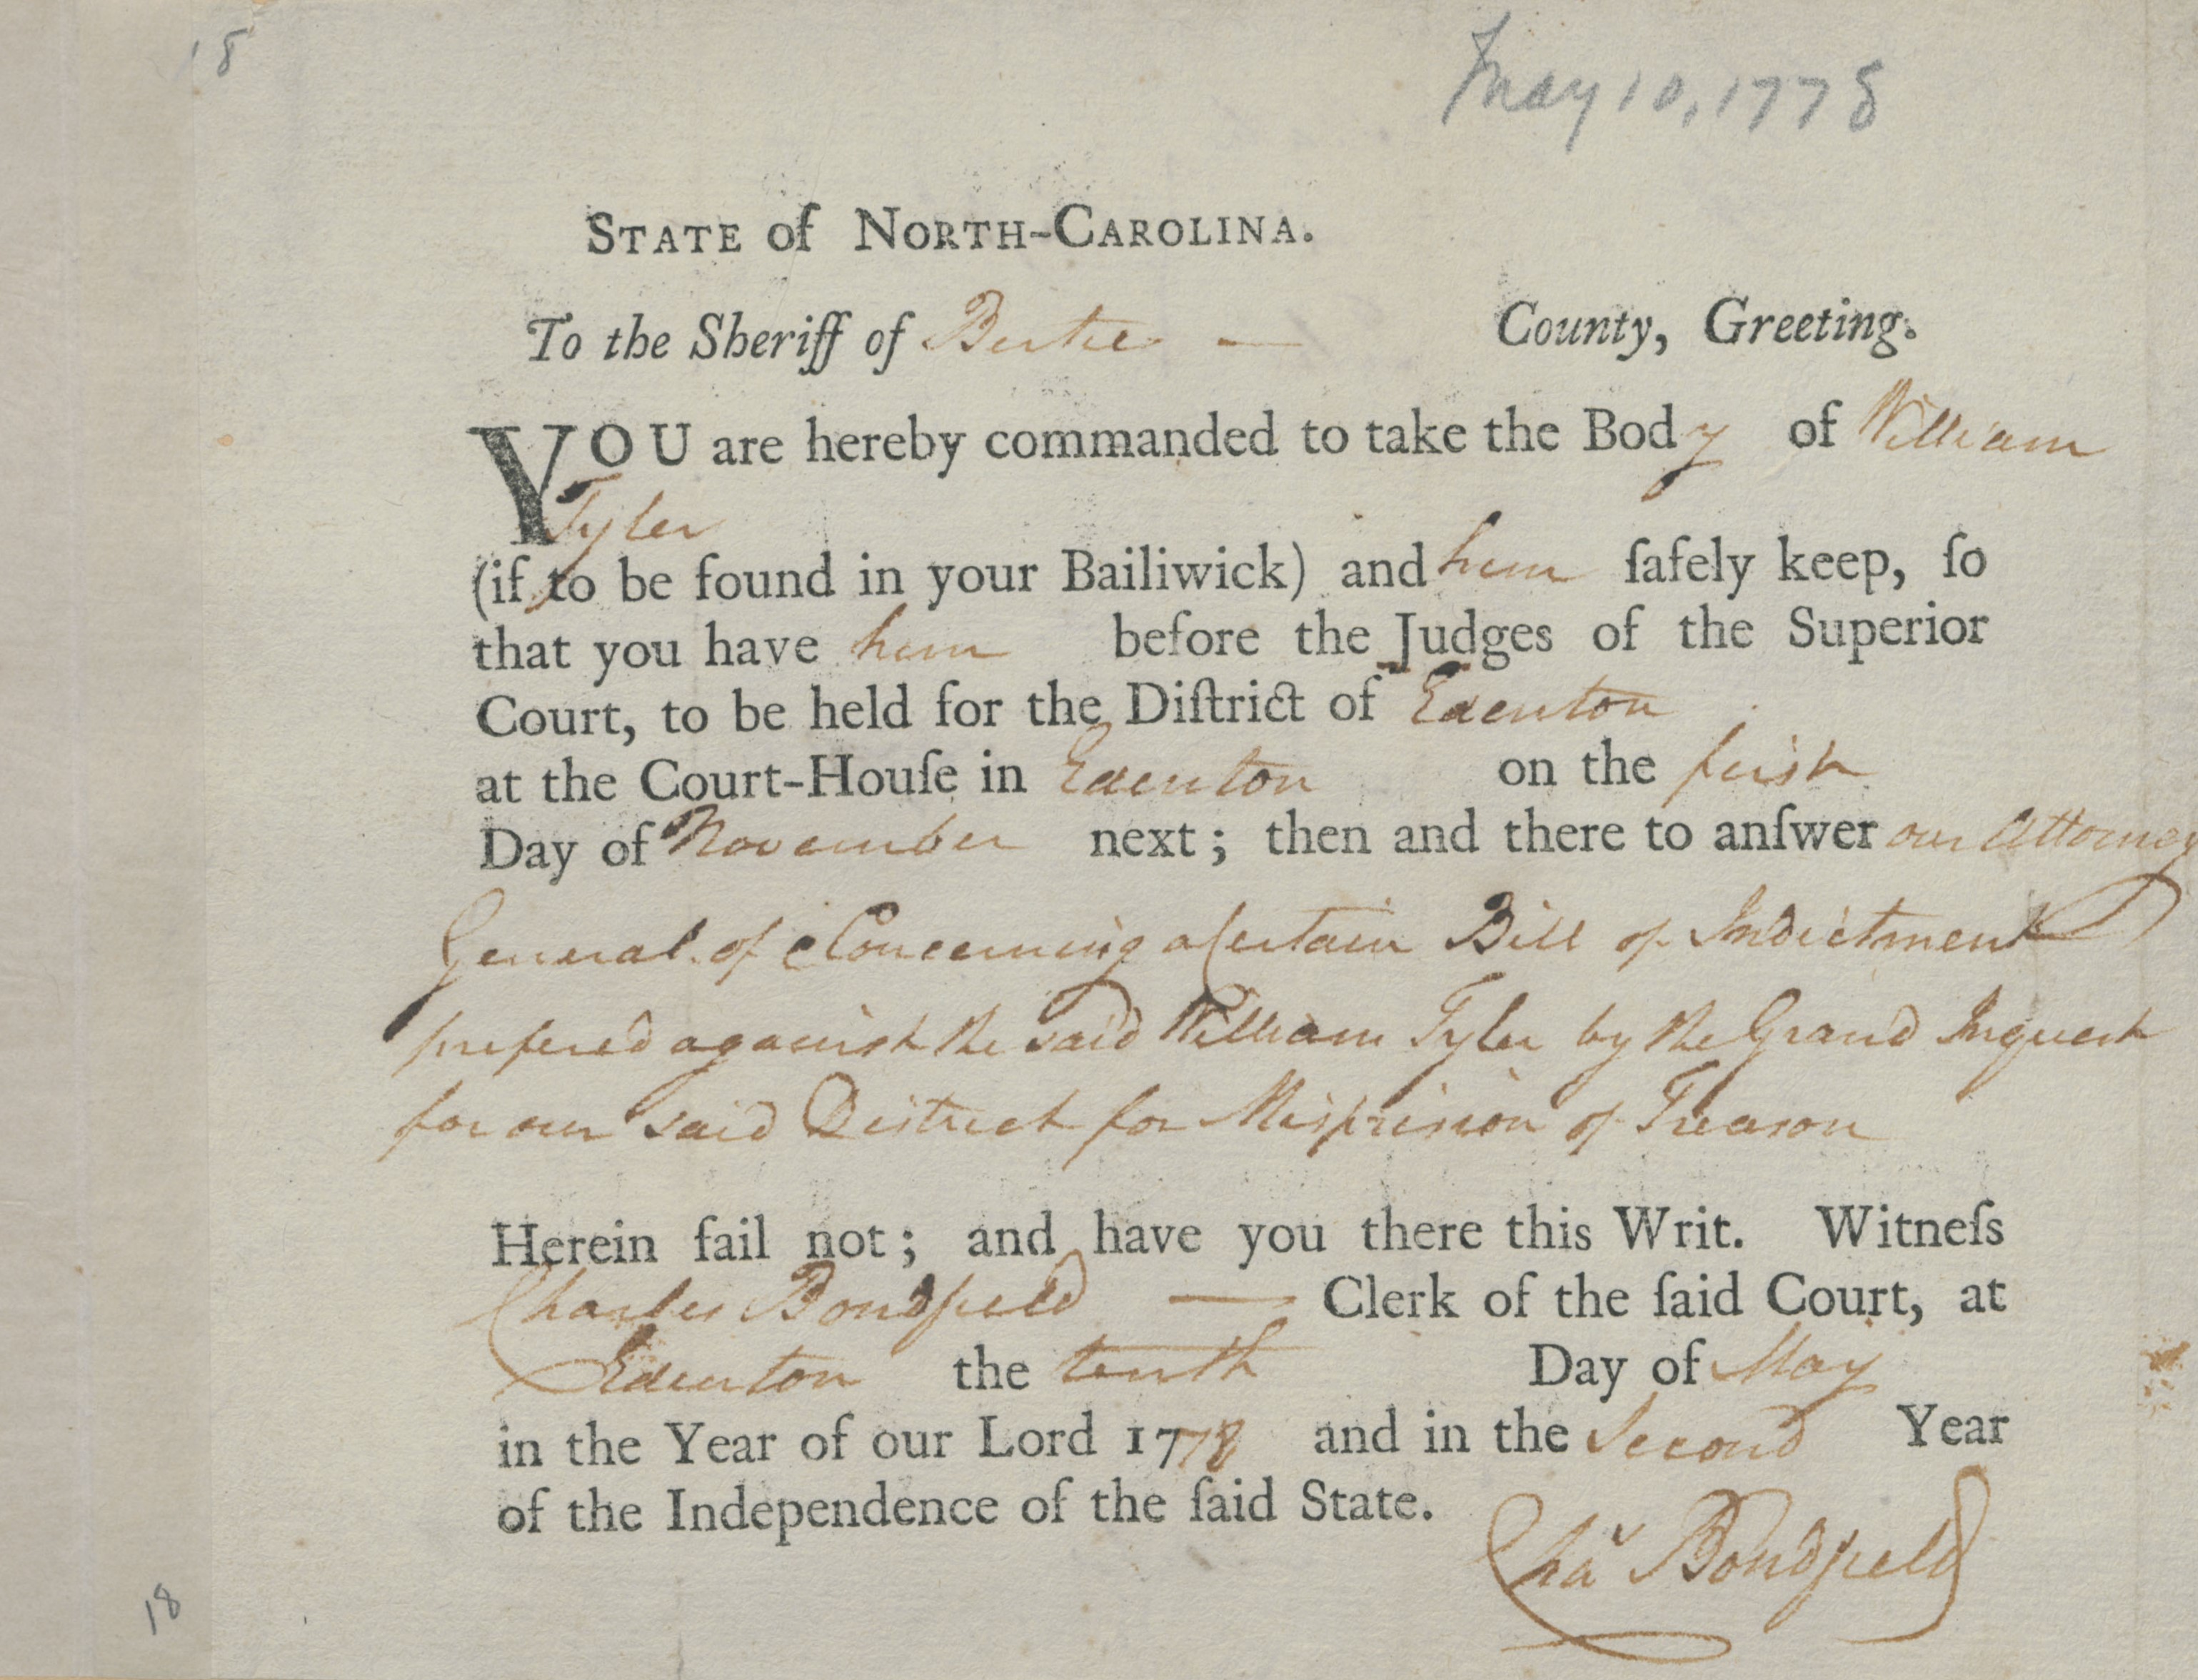 18
May 10, 1778
STATE of NORTH-CAROLINA.
To the Sheriff of Bertie — County, Greeting.
YOU are hereby commanded to take the Body of William
Tyler
(if to be found in your Bailiwick) and him ſafely keep, ſo
that you have him before the Judges of the Superior
Court, to be held for the Diſtrict of Edenton
at the Court-Houſe in Edenton on the first
Day of November next; then and there to anſwer our Attorney
General of & Concerning a Certain Bill of Indictment
prefered against the said William Tyler by the Grand Inquest
for our said District for Misprision of Treason
Herein fail not; and have you there this Writ. Witneſs
Charles Bondfield — Clerk of the ſaid Court, at
Edenton the tenth Day of May
in the Year of our Lord 1778 and in the Second Year
of the Independence of the ſaid State.
Chaˢ Bondfield
18